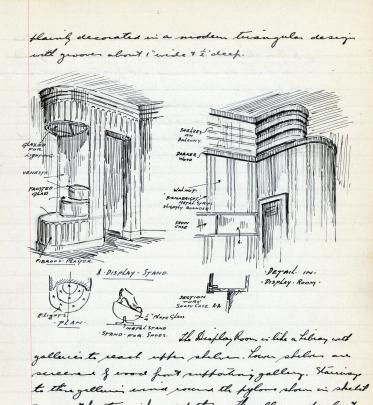 plainly decorated in a modern triangular design
with grooves about 1" wide & ½" deep.
GLAZED
FOR
LIGHTING
VENESTA
FROSTED
GLASS
FIBROUS PLASTER
A DISPLAY STAND.
LIGHTS
PLAN
½" PLATE GLASS
METAL STAND
STAND FOR SHOES.
SHELVES
ON
BALCONY
DARKER
WOOD
WALNUT
METAL STRIP
SHOW
CASE
DETAIL IN
DISPLAY ROOM.
SECTION
THRO'
SHOW CASE A-A
The Display Room is like a library with
galleries to reach upper shelves. Lower shelves are
screened by wood front supporting gallery. Stairway
to the galleries wind round the pylons shown in sketch